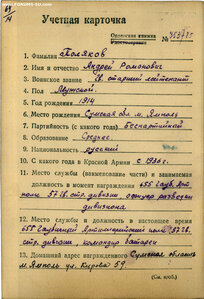 FORUMS-SU.COM
Учетная карточка
Орденская книжка
1. Фамилия Поляков
2. Имя и отчество Андрей Романович
3. Воинское звание гв. старший лейтенант
4. Пол Мужской
5. Год рождения 1914
6. Место рождения Сумская обл. м. Ямполь
7. Партийность (с какого года) беспартийный
8. Образование Среднее
9. Национальность русский
10. С какого года в Красной Армии с 1936 г.
11. Место службы (наименование части) и занимаемая
должность в момент награждения 655
стр. дивизии,
дивизиона
12. Место службы и должность в настоящее время
655
стр. дивизии, командир батареи
13. Домашний адрес награжденного Сумская область
м. Ямполь ул. Кирова 59
(См. н/об.)